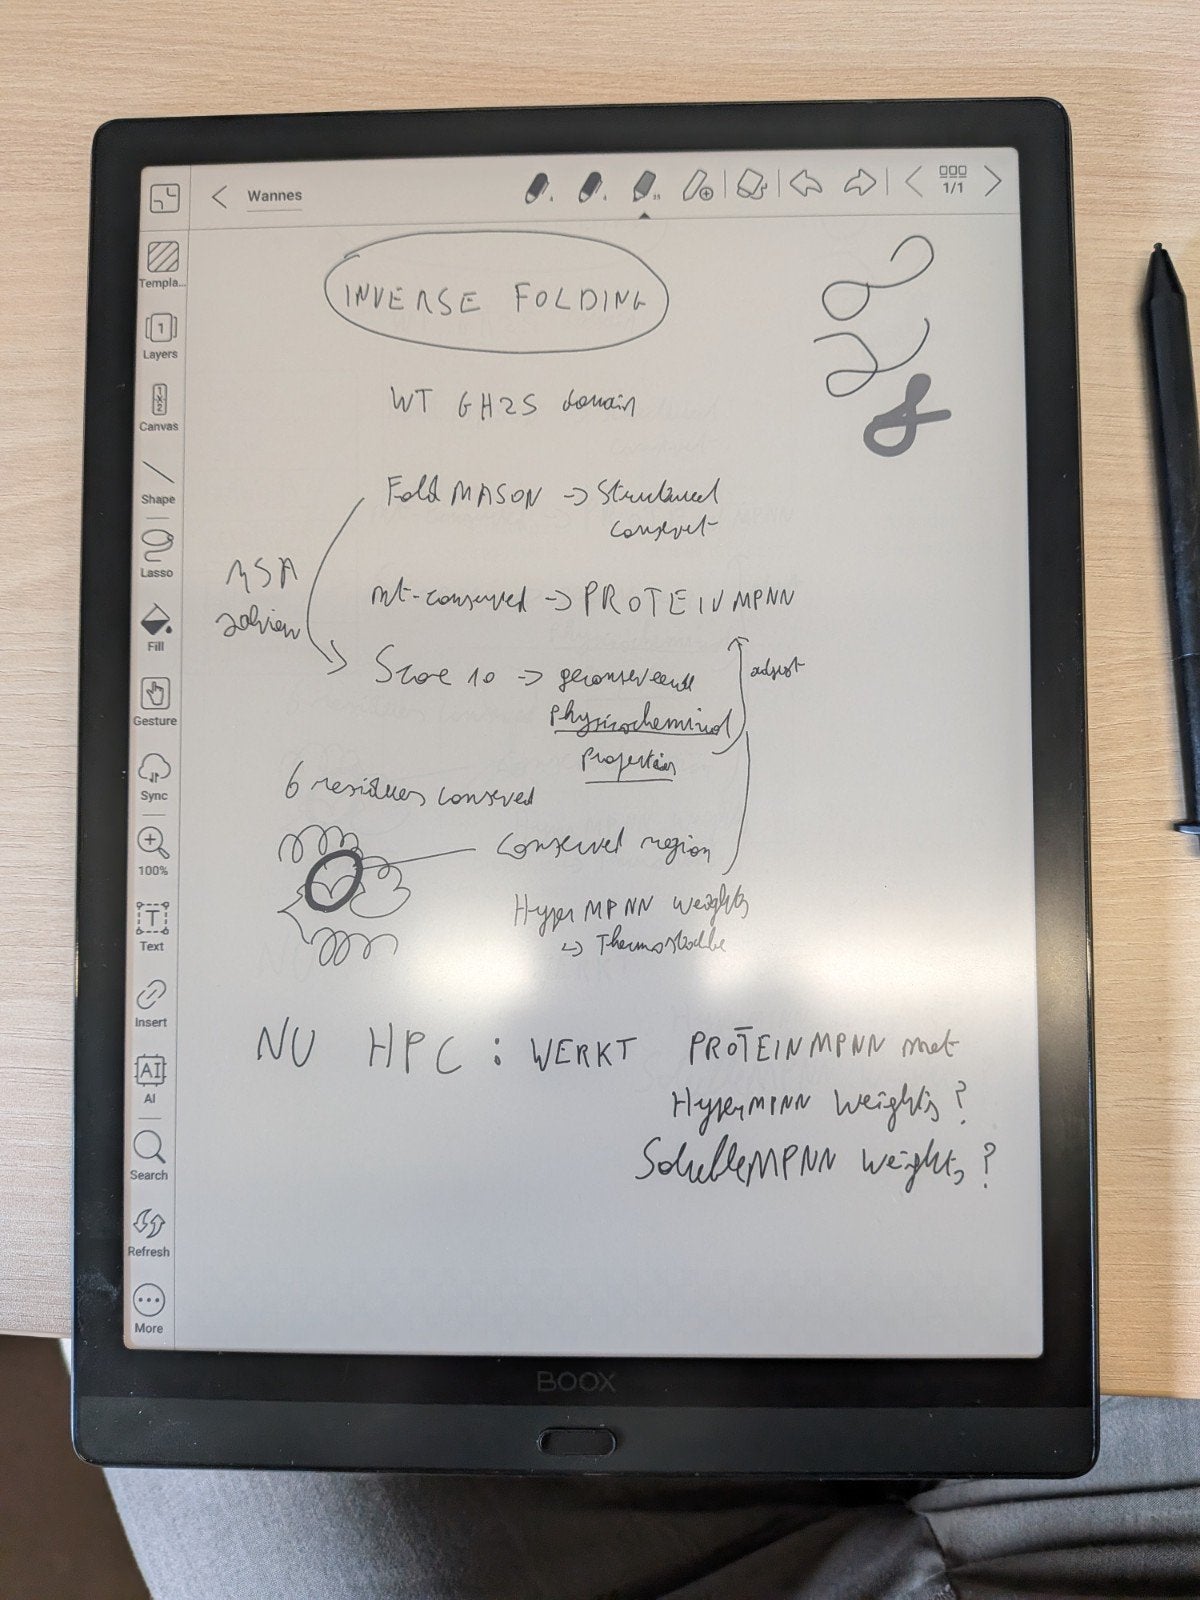 Wannes
1/1
INVERSE FOLDING
WT GH25 domain
FoldMASON -> Structureel
conserv-
MSA
Jalview
nt-conserved -> PROTEINMPNN
Score 10 -> geconserveerde
physicochemical
properties
adjust
6 residues conserved
Conserved region
HyperMPNN weights
-> Thermostable
NU HPC : WERKT PROTEINMPNN met
HyperMPNN weights ?
SolubleMPNN weights ?
Templa...
Layers
Canvas
Shape
Lasso
Fill
Gesture
Sync
100%
Text
Insert
AI
Search
Refresh
More
BOOX